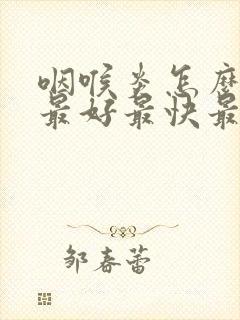 咽喉炎怎麼
最好最快最
邹春蕾